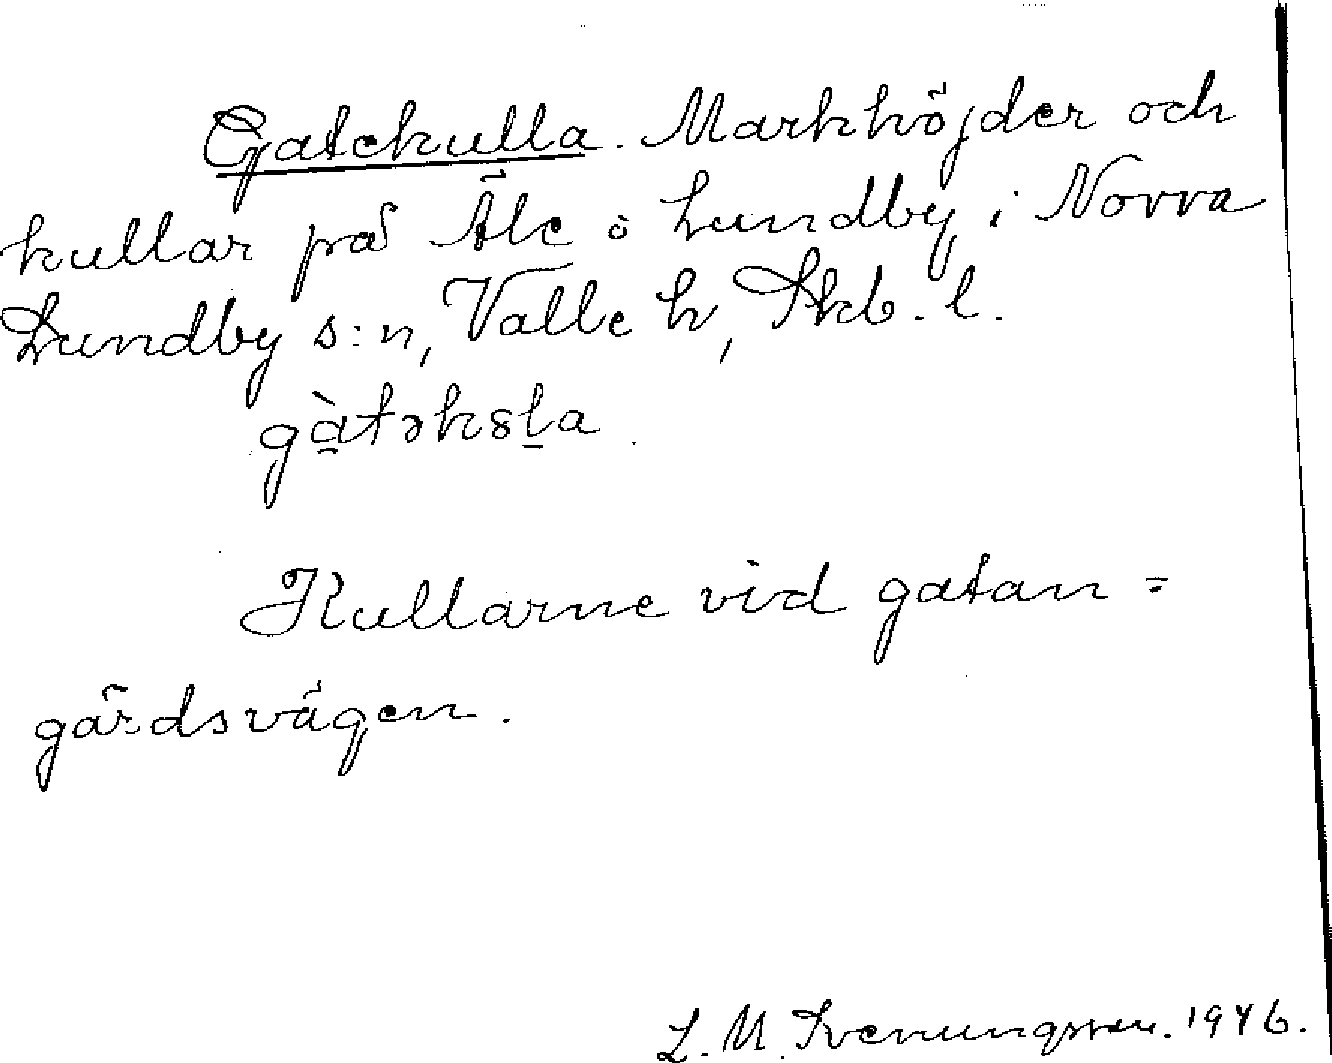 Gatekulla. Markhöjder och
kullar på Äle ö Lundby i Norra
Lundby s:n, Valle h, Skb. l.
gàtəkɞla
Kullarne vid gatan =
gärdsvägen.
L. M. Svenungsson. 1946.